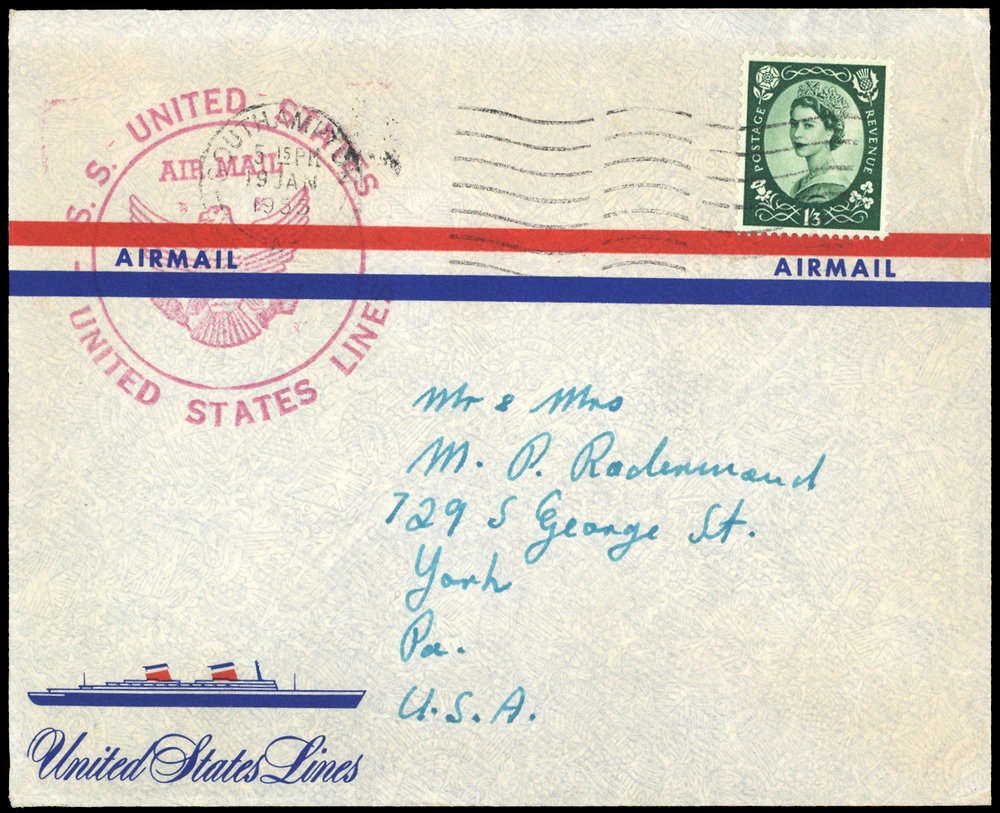 S. S. UNITED STATES
AIR MAIL
UNITED STATES LINES
SOUTHAMPTON
5 15 PM
19 JAN
POSTAGE
REVENUE
1/3
AIRMAIL
AIRMAIL
Mr & Mrs
M. P. Radermand
729 S George St.
York
Pa.
U.S.A.
United States Lines